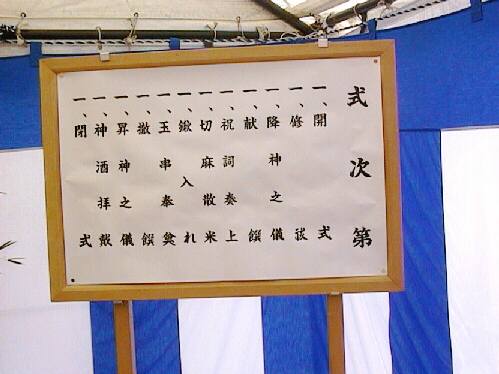 式次第
一、開式
一、修祓
一、降神之儀
一、献饌
一、祝詞奏上
一、切麻散米
一、鍬入れ
一、玉串奉奠
一、撤饌
一、昇神之儀
一、神酒拝戴
一、閉式